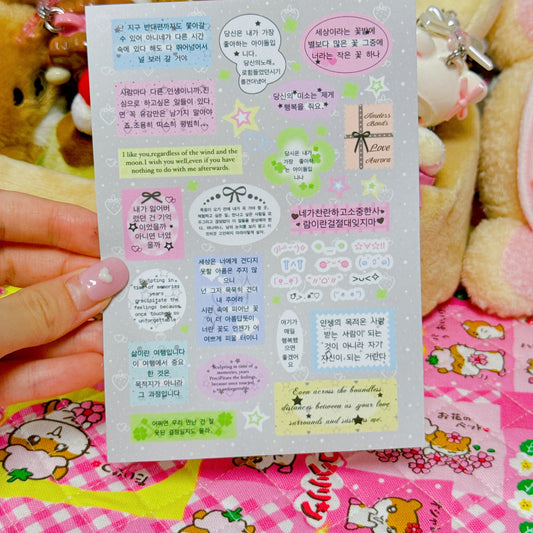 지구 반대편까지도 쫓아갈
수 있어 아니 네가 다른 시간
속에 있다 해도 다 뛰어넘어서
널 보러 갈 거야
당신은 내가 가장
좋아하는 아이돌입
니다.
당신의 노래,
세상이라는 꽃밭에
별보다 많은 꽃 그중에
너라는 작은 꽃 하나
사람마다 다른 인생이니까, 진
심으로 하고싶은 일들이 있다
면 꼭 유감만은 남기지 말아야
죠. 조용히 따스히 평범히
당신의 미소는 제게
행복을 줘요.
Timeless
Bonds
Love
Aurora
I like you,regardless of the wind and the
moon.I wish you well,even if you have
nothing to do with me afterwards.
당신은 내가
가장 좋아하
는 아이돌입
니다
내가 잃어버
렸던 건 기억
이었을까
아니면 너였
을까
네가찬란하고소중한사
람이란걸절대잊지마
세상은 너에게 견디지
못할 아픔은 주지 않으
니
넌 그저 묵묵히 견뎌
내 주어라
시련 속에 피어난 꽃
이 더 아름답듯이
너란 꽃도 언젠가 예
쁘게 피울 터이니
Sculpting in
time of
memories years
precipitate the
feelings because
once touched so
unforgettable
여기가
매일
행복했
으면
좋겠어
요
인생의 목적은 사랑
받는 사람이 되는
것이 아니라 자기
자신이 되는 거란다
삶이란 여행입니다
이 여행에서 중요
한 것은
목적지가 아니라
그 과정입니다
Sculpting in time of
memories, years
Precipitate the feelings,
because once touched,
Even across the boundless
distances between us your love
surrounds and sustains me.
어쩌면 우리 만난 건 잘
못된 결정일지도 몰라.
お花の